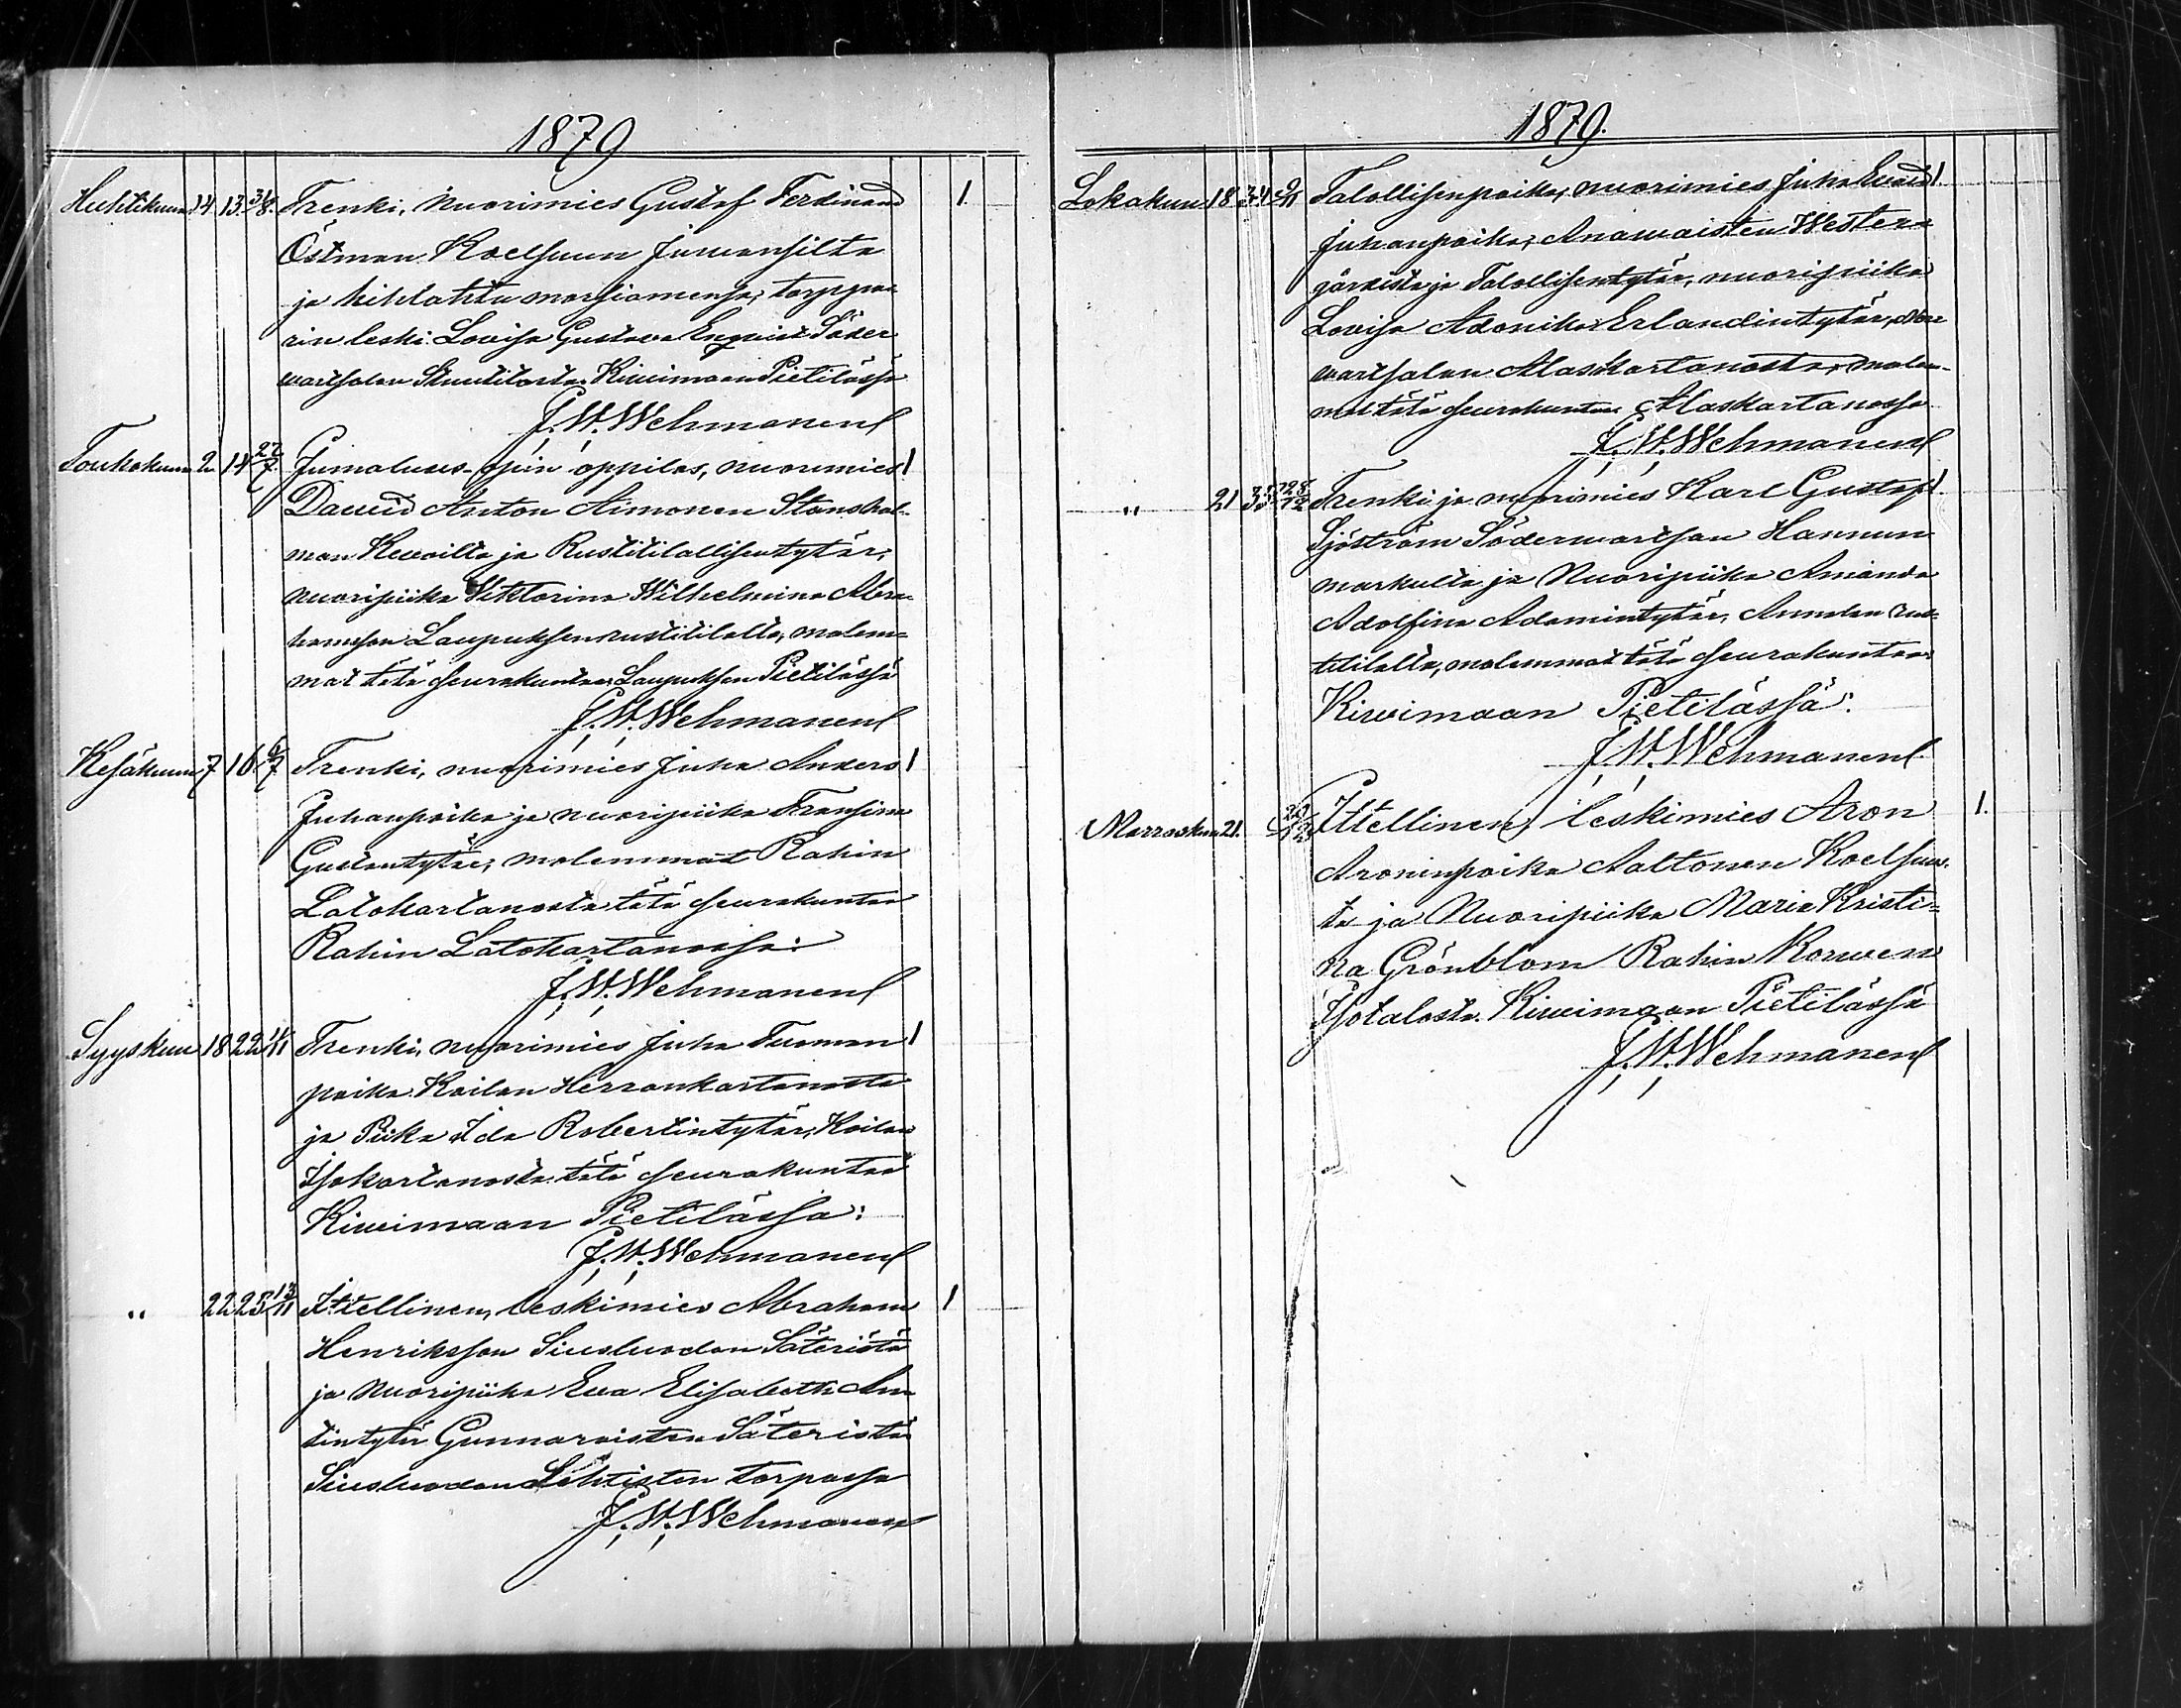 1879
Huhtikuu 14 13. 31/8. Trenki, Nuorimies Gustaf Ferdinand 1.
Östman Koelsuun Juwansilta
ja kihlattu morsiamensa, torppa-
rin leski Lovisa Gustava Enqvist Söder
wartsalan Kiwimaan Pietilässä
J. W. Wehmanen
Toukokuu 2 14 27/7. Jumaluus-opin oppilas, nuorimies 1
Dawid Anton Aimonen
ja Rustitilallisentytär,
nuoripiika Viktorina Wilhelmina Abra-
hamsson Laupuksen rustitilalta, molem-
mat tätä seurakuntaa Laupuksen Pietilässä
J. W. Wehmanen
Kesäkuu 7 16 6/7 Trenki, nuorimies Juha Anders 1
Juhanpoika ja nuoripiika Fransina
Gustantytär, molemmat Rahin
Latokartanosta tätä seurakuntaa
Rahin Latokartanossa:
J. W. Wehmanen
Syyskuu 18 22 4/11 Trenki, nuorimies Juha Tuoman 1
poika Koilan Herrankartanosta
ja Piika Ida Robertintytär, Koilan
Isokartanosta tätä seurakuntaa
Kiwimaan Pietilässa:
J. W. Wehmanen
" 22 25 13/11 Ittellinen, leskimies Abraham 1
Henriksson Siusluodon Säteristä
ja Nuoripiika Eva Elisabeth An-
tintytär Gunnaraisten Säteristä
Siusluodon Lehtisten torpassa
J. W. Wehmanen
1879.
Lokakuu 18 34 9/11 Talollisenpoika, nuorimies Juha Evard 1.
Juhanpoika, Anawaisten Wester-
gårdista ja Talollisentytär, nuoripiika
Lovisa Adonika Erlandintytär,
wartsalan Alaskartanosta, molem-
mat tätä seurakuntaa Alaskartanossa
J. W. Wehmanen
" 21 35 28/12 Trenki ja nuorimies Karl Gustaf 1.
Sjöström Söderwartsan Hannun
markulta ja Nuoripiika Amanda
Adolfina Adamintytär, Annalan rus-
titilalta, molemmat tätä seurakuntaa
Kiwimaan Pietilässä:
J. W. Wehmanen
Marraskuu 21. Ittellinen, leskimies Aron 1.
Aroninpoika Aaltonen Koelsuus-
ta ja Nuoripiika Maria Kristi=
na Grönblom Rahin Korwen
Isotalosta. Kiwimaan Pietilässä
J. W. Wehmanen